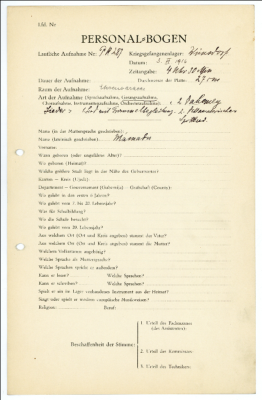 Lfd. Nr
PERSONAL-BOGEN
Lautliche Aufnahme Nr: PK 287
Kriegsgefangenenlager:
Datum:
Dauer der Aufnahme:
Zeitangabe: 4 Uhr 30 Min
Durchmesser der Platte: 27 cm
Raum der Aufnahme:
Art der Aufnahme (Sprechaufnahme, Gesangsaufnahme,
Choraufnahme, Instrumentenaufnahme, Orchesteraufnahme): 2 Dahomey
Lieder: 1 Lied mit
Name (in der Muttersprache geschrieben):
Name (lateinisch geschrieben): Mamadu
Vorname:
Wann geboren (oder ungefähres Alter)?
Wo geboren (Heimat)?
Welche größere Stadt liegt in der Nähe des Geburtsortes?
Kanton — Kreis (Ujedi):
Departement — Gouvernement (Gubernija) — Grafschaft (County):
Wo gelebt in den ersten 6 Jahren?
Wo gelebt vom 7. bis 20. Lebensjahr?
Was für Schulbildung?
Wo die Schule besucht?
Wo gelebt vom 20. Lebensjahr?
Aus welchem Ort (Ort und Kreis angeben) stammt der Vater?
Aus welchem Ort (Ort und Kreis angeben) stammt die Mutter?
Welchem Volksstamm angehörig?
Welche Sprache als Muttersprache?
Welche Sprachen spricht er außerdem?
Kann er lesen? Welche Sprachen?
Kann er schreiben? Welche Sprachen?
Spielt er ein im Lager vorhandenes Instrument aus der Heimat?
Singt oder spielt er moderne europäische Musikweisen?
Religion: Beruf:
Beschaffenheit der Stimme:
1. Urteil des Fachmannes
(des Assistenten):
2. Urteil des Kommissars:
3. Urteil des Technikers: